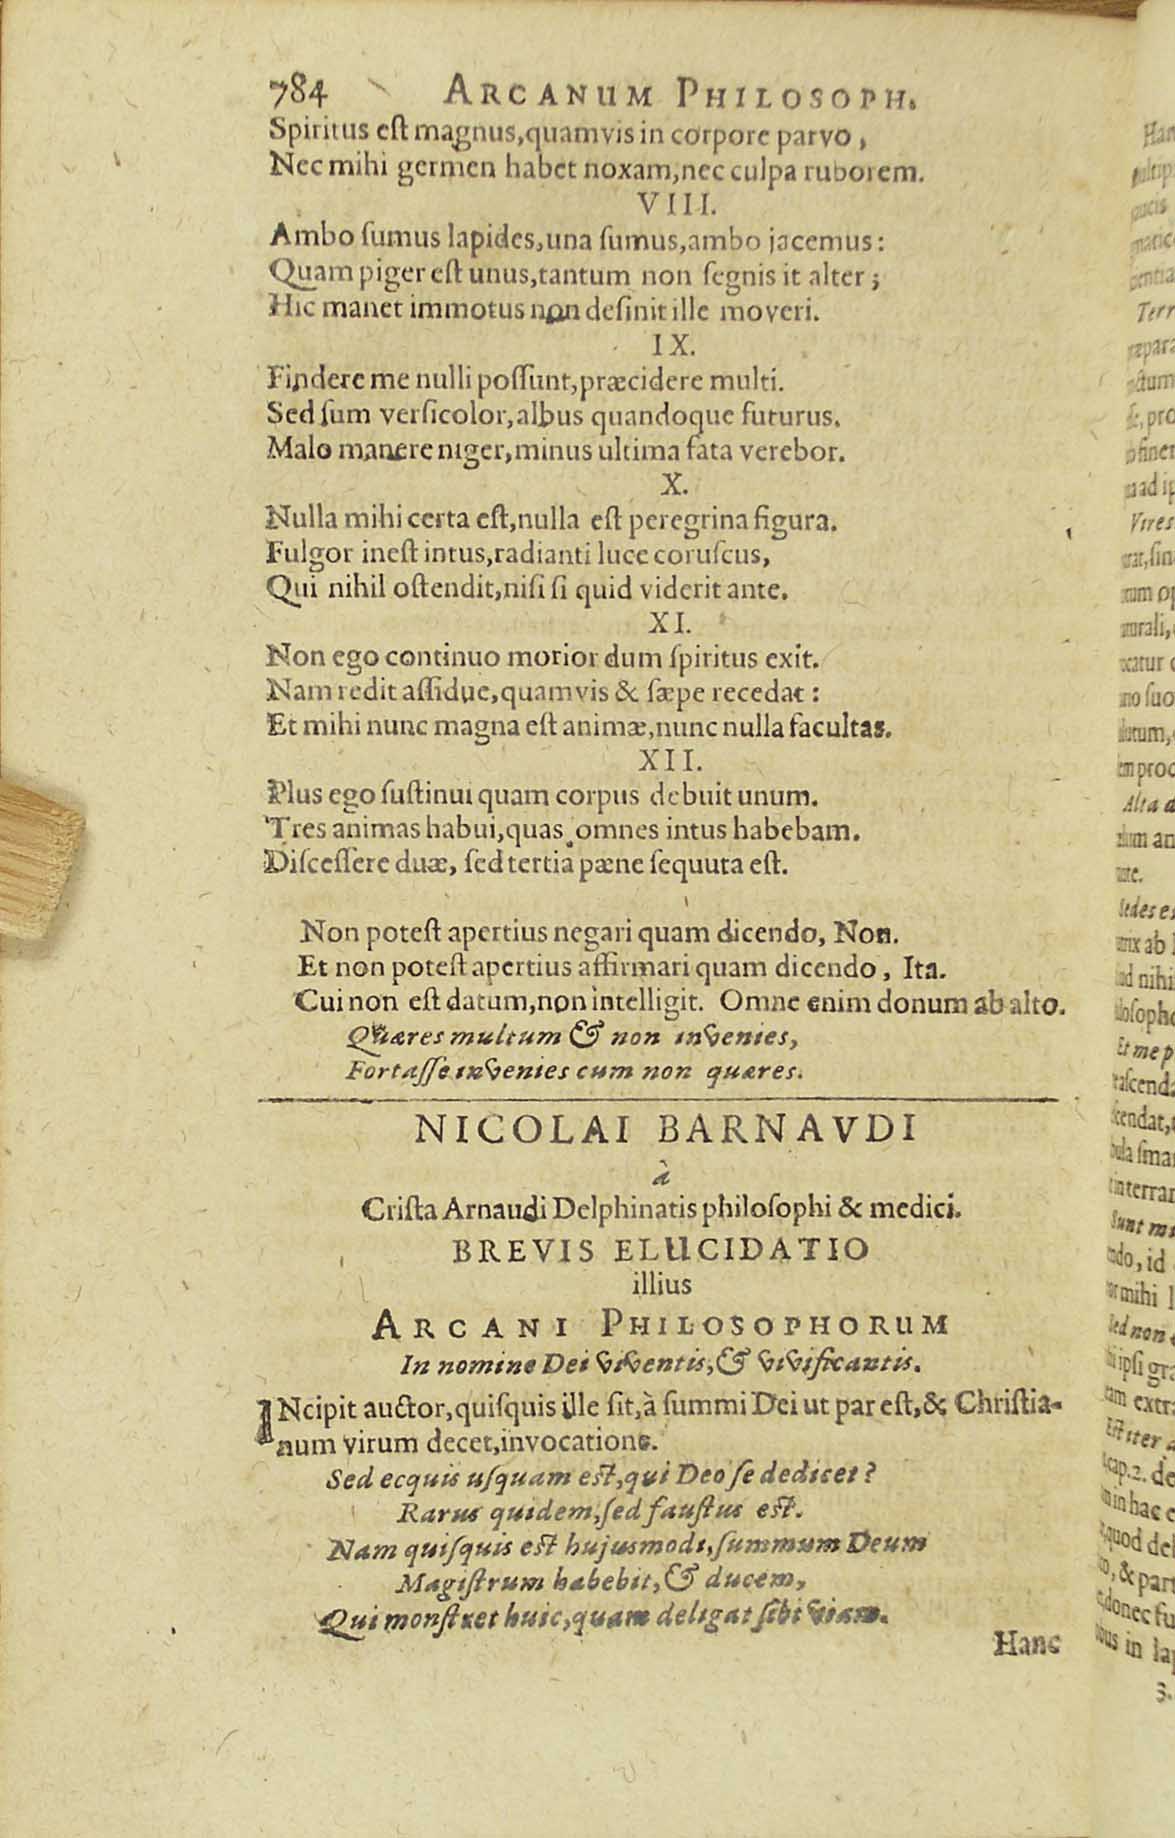 784 ARCANUM PHILOSOPH.
Spiritus eſt magnus, quamvis in corpore parvo,
Nec mihi germen habet noxam, nec culpa ruborem.
VIII.
Ambo ſumus lapides, una ſumus, ambo jacemus:
Quam piger eſt unus, tantum non ſegnis it alter;
Hic manet immotus non deſinit ille moveri.
IX.
Findere me nulli poſſunt, præcidere multi.
Sed ſum verſicolor, albus quandoque futurus.
Malo manere niger, minus ultima fata verebor.
X.
Nulla mihi certa eſt, nulla eſt peregrina figura.
Fulgor ineſt intus, radianti luce coruſcus,
Qui nihil oſtendit, niſi ſi quid viderit ante.
XI.
Non ego continuo morior dum ſpiritus exit.
Nam redit aſſidue, quamvis & ſæpe recedat:
Et mihi nunc magna eſt animæ, nunc nulla facultas.
XII.
Plus ego ſuſtinui quam corpus debuit unum.
Tres animas habui, quas omnes intus habebam.
Diſceſſere duæ, ſed tertia pæne ſequuta eſt.
Non poteſt apertius negari quam dicendo, Non.
Et non poteſt apertius affirmari quam dicendo, Ita.
Cui non eſt datum, non intelligit. Omne enim donum ab alto.
Quæres multum & non invenies,
Fortaſſe invenies cum non quæres.
NICOLAI BARNAVDI
à
Criſta Arnaudi Delphinatis philoſophi & medici.
BREVIS ELUCIDATIO
illius
ARCANI PHILOSOPHORUM
In nomine Dei viventis, & vivificantis.
INcipit auctor, quiſquis ille ſit, à ſummi Dei ut par eſt, & Chriſtia-
num virum decet, invocatione.
Sed ecquis uſquam eſt, qui Deo ſe dedicet?
Rarus quidem, ſed fauſtus eſt.
Nam quiſquis eſt hujusmodi, ſummum Deum
Magiſtrum habebit, & ducem,
Qui monſtret huic, quam deligat ſibi viam.
Hanc